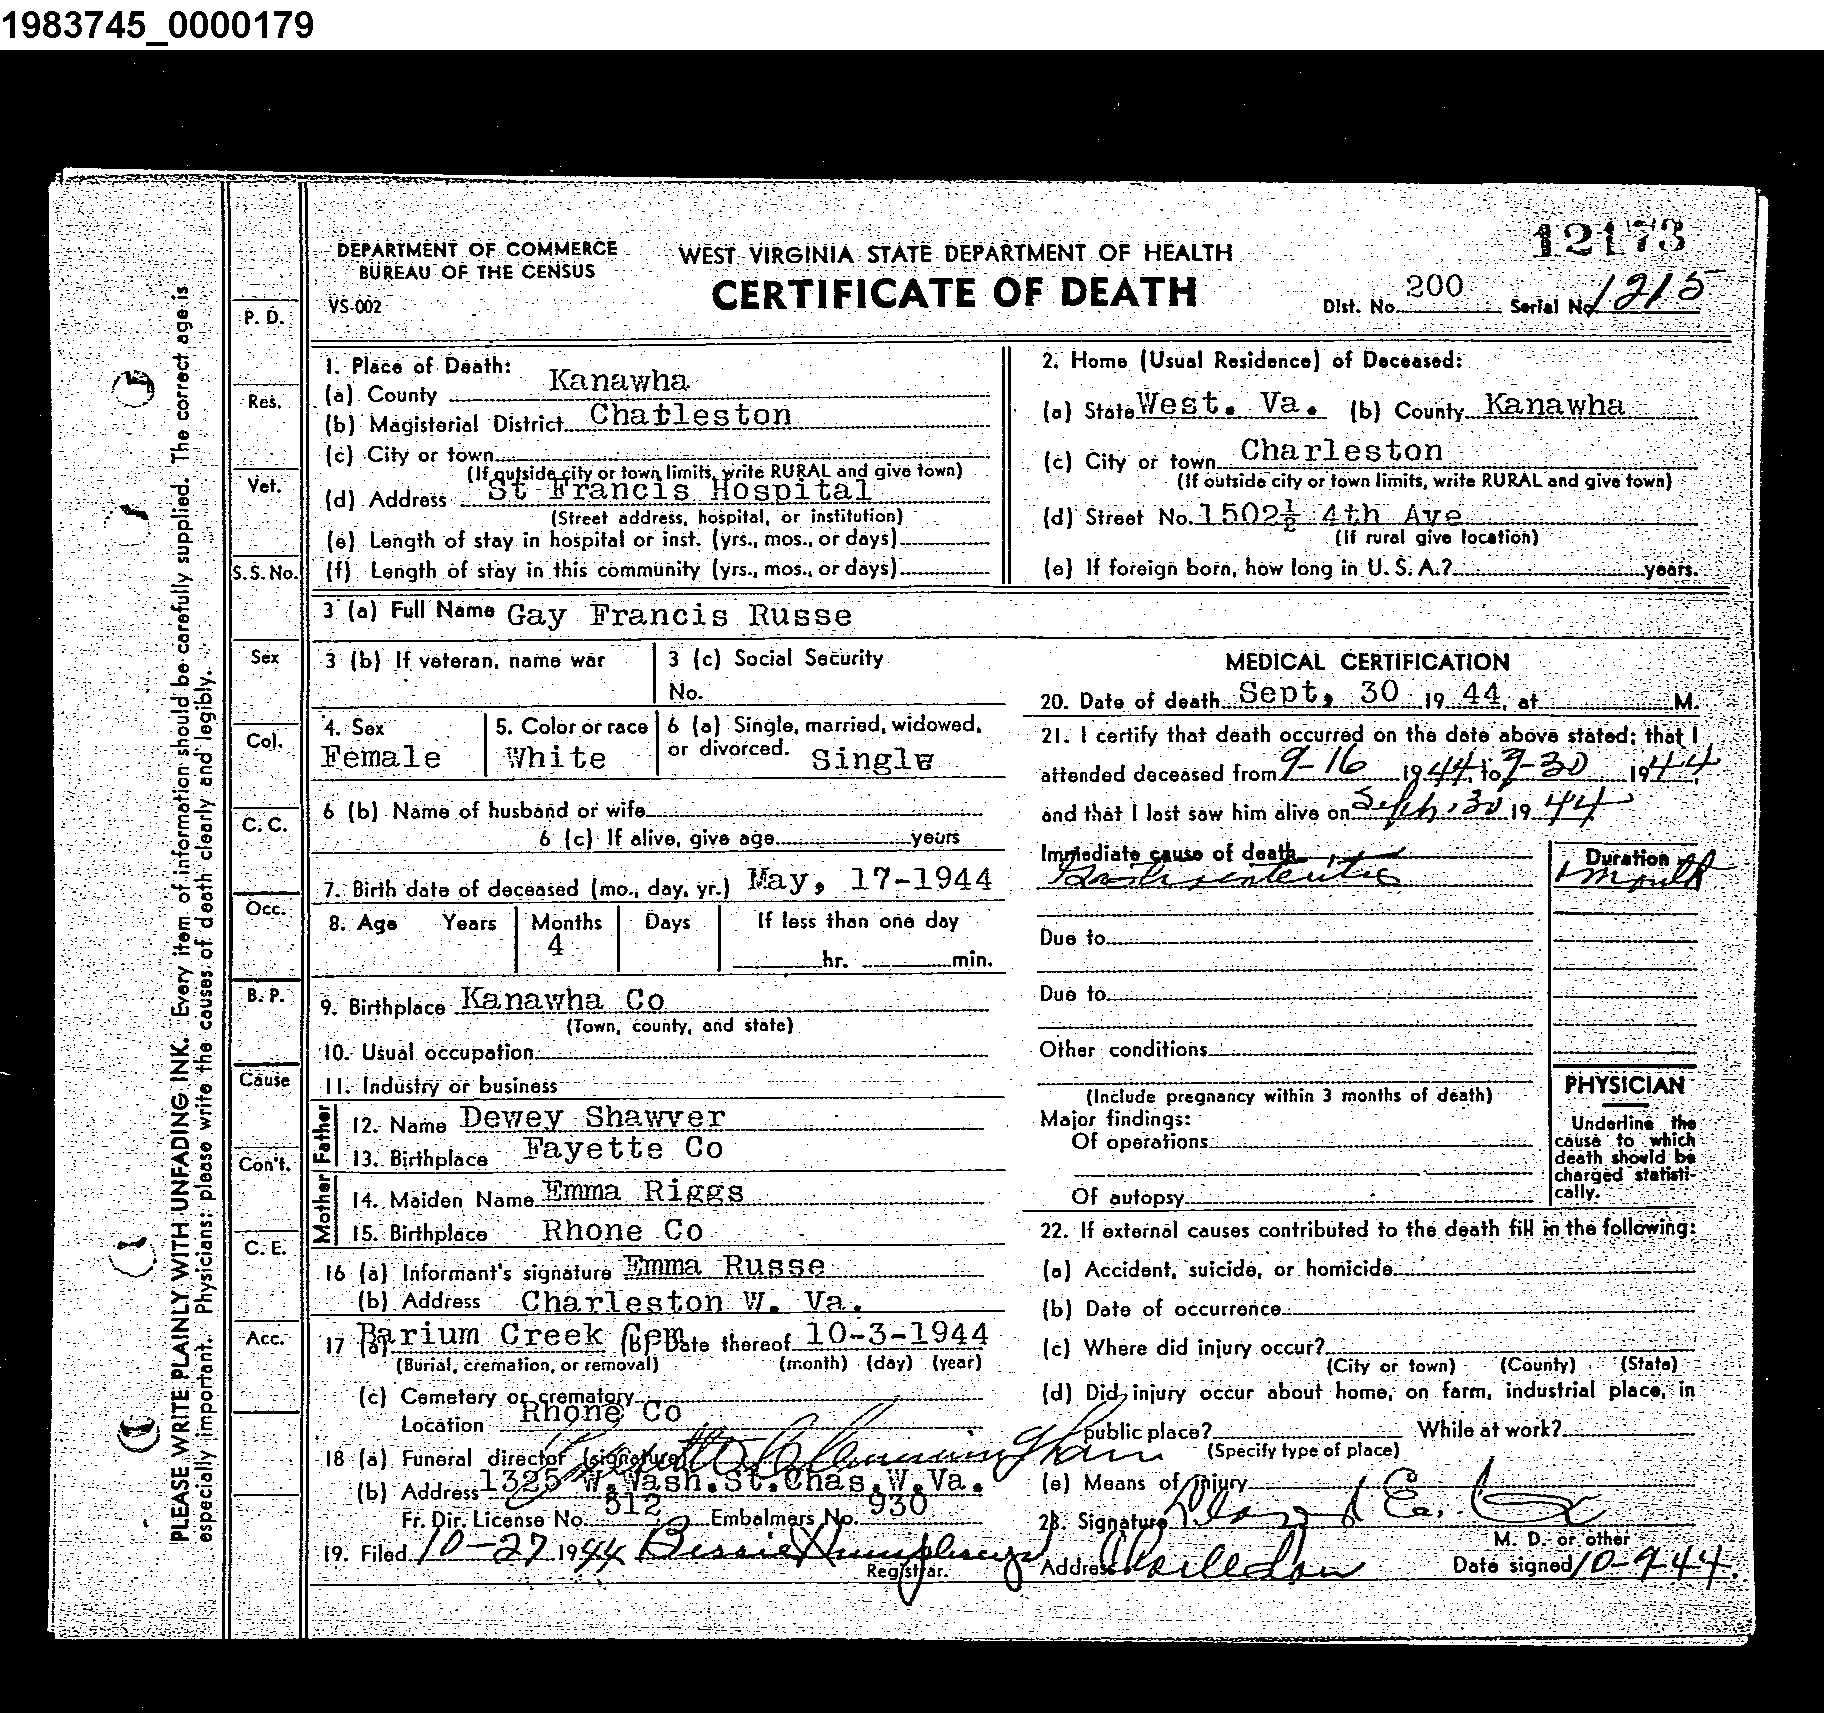 1983745_0000179
12173
DEPARTMENT OF COMMERCE
BUREAU OF THE CENSUS
VS-002
WEST VIRGINIA STATE DEPARTMENT OF HEALTH
CERTIFICATE OF DEATH
Dist. No. 200 Serial No. 1215
PLEASE WRITE PLAINLY WITH UNFADING INK. Every item of information should be carefully supplied. The correct age is
especially important. Physicians: please write the causes of death clearly and legibly.
P. D.
Res.
Vet.
S.S. No.
Sex
Col.
C. C.
Occ.
B. P.
Cause
Con't.
C. E.
Acc.
1. Place of Death:
(a) County Kanawha
(b) Magisterial District Charleston
(c) City or town
(If outside city or town limits, write RURAL and give town)
(d) Address St Francis Hospital
(Street address, hospital, or institution)
(e) Length of stay in hospital or inst. (yrs., mos., or days)
(f) Length of stay in this community (yrs., mos., or days)
2. Home (Usual Residence) of Deceased:
(a) State West. Va. (b) County Kanawha
(c) City or town Charleston
(If outside city or town limits, write RURAL and give town)
(d) Street No. 1502½ 4th Ave
(If rural give location)
(e) If foreign born, how long in U. S. A.? years.
3 (a) Full Name Gay Francis Russe
3 (b) If veteran, name war
3 (c) Social Security
No.
4. Sex
Female
5. Color or race
White
6 (a) Single, married, widowed,
or divorced. Single
6 (b) Name of husband or wife
6 (c) If alive, give age years
7. Birth date of deceased (mo., day, yr.) May, 17-1944
8. Age Years Months Days If less than one day
4
hr. min.
9. Birthplace Kanawha Co
(Town, county, and state)
10. Usual occupation
11. Industry or business
Father
12. Name Dewey Shawver
13. Birthplace Fayette Co
Mother
14. Maiden Name Emma Riggs
15. Birthplace Rhone Co
16 (a) Informant's signature Emma Russe
(b) Address Charleston W. Va.
17 (a) Barium Creek Cem (b) Date thereof 10-3-1944
(Burial, cremation, or removal) (month) (day) (year)
(c) Cemetery or crematory
Location Rhone Co
18 (a) Funeral director (signature) Cunningham
(b) Address 1325 W. Wash. St. Chas. W. Va.
Fr. Dir. License No. 512 Embalmers No. 930
19. Filed 10-27 1944 Bessie Humphreys
Registrar.
MEDICAL CERTIFICATION
20. Date of death Sept, 30 19 44, at M.
21. I certify that death occurred on the date above stated; that I
attended deceased from 9-16 1944, to 9-30 1944
and that I last saw him alive on Sept. 30 19 44
Immediate cause of death
Duration
1 month
Due to
Due to
Other conditions
(Include pregnancy within 3 months of death)
Major findings:
Of operations
Of autopsy
PHYSICIAN
Underline the
cause to which
death should be
charged statisti-
cally.
22. If external causes contributed to the death fill in the following:
(a) Accident, suicide, or homicide
(b) Date of occurrence
(c) Where did injury occur?
(City or town) (County) (State)
(d) Did injury occur about home, on farm, industrial place, in
public place? While at work?
(Specify type of place)
(e) Means of injury
23. Signature
M. D. or other
Address Charleston Date signed 10-9-44.